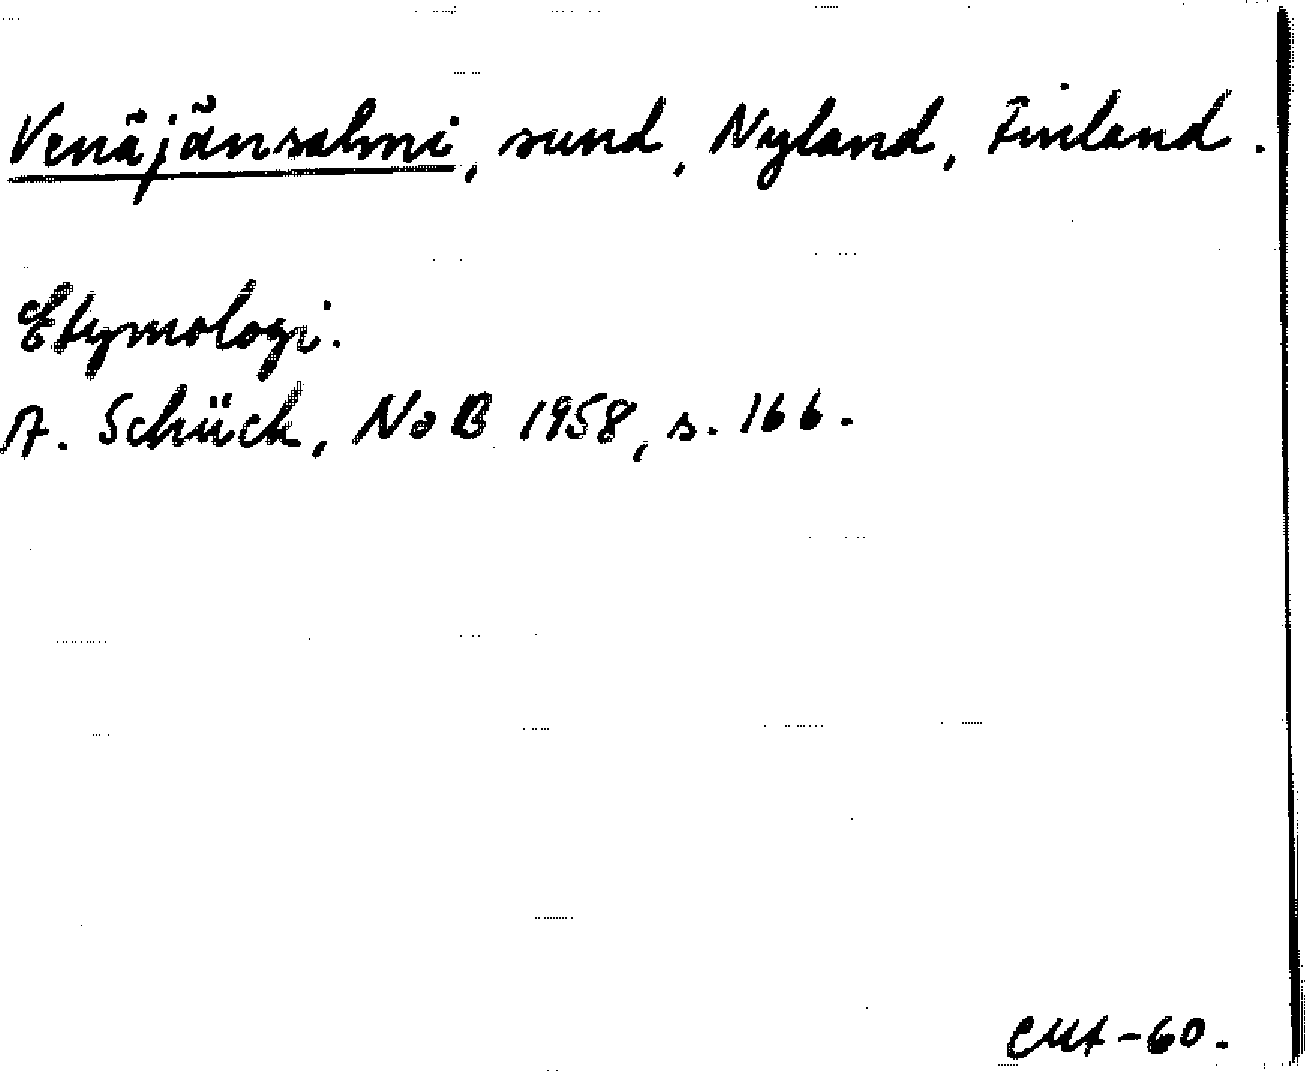 Venäjänsalmi, sund, Nyland, Finland.
Etymologi.
A. Schück, NoB 1958, s. 166.
CMA-60.